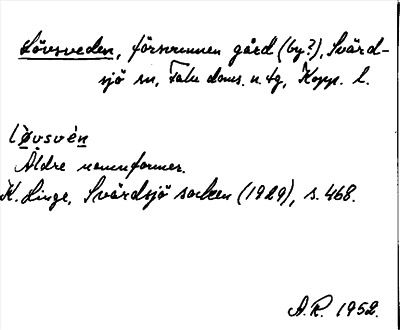 Lövsveden, försvunnen gård (by?), Svärd-
sjö sn, Falu doms. n. tg, Kopp. l.
lövsvén
Äldre namnformer.
K. Linge, Svärdsjö socken (1929), s. 468.
A.R. 1952.